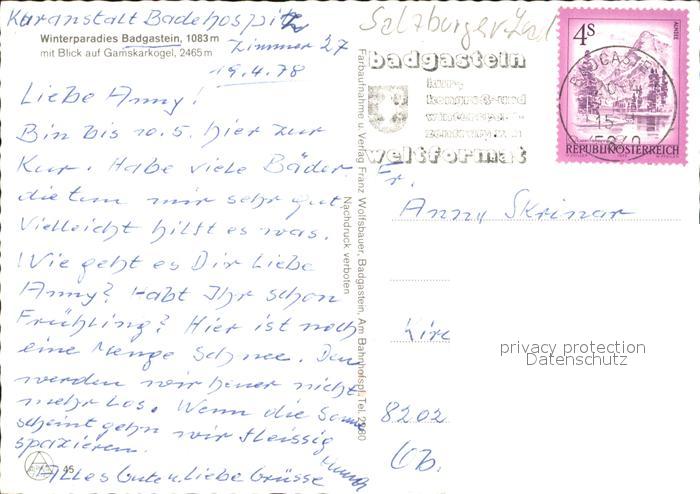 Kuranstalt Badehospitz
Winterparadies Badgastein, 1083 m
mit Blick auf Gamskarkogel, 2465 m
Zimmer 27
19.4.78
Liebe Anny!
Bin bis 10.5. hier zur
Kur. Habe viele Bäder
die tun mir sehr gut
Vielleicht hilft es was.
Wie geht es Dir Liebe
Anny? Habt Ihr schon
Frühling? Hier ist noch
eine Menge Schnee. Den
werden wir heuer nicht
mehr los. Wenn die Sonne
scheint gehn wir fleissig
spazieren.
Alles Gute u. Liebe Grüsse
45
Farbaufnahme u. Verlag Franz Wolfsbauer, Badgastein, Am Bahnhofspl. Tel. 2960
Nachdruck verboten
Salzburger Land
badgastein
kongreß- und
weltformat
4S
ALMSEE
REPUBLIK ÖSTERREICH
BADGASTEIN
5640
Fr.
Anny Skrinar
privacy protection
Datenschutz
8202